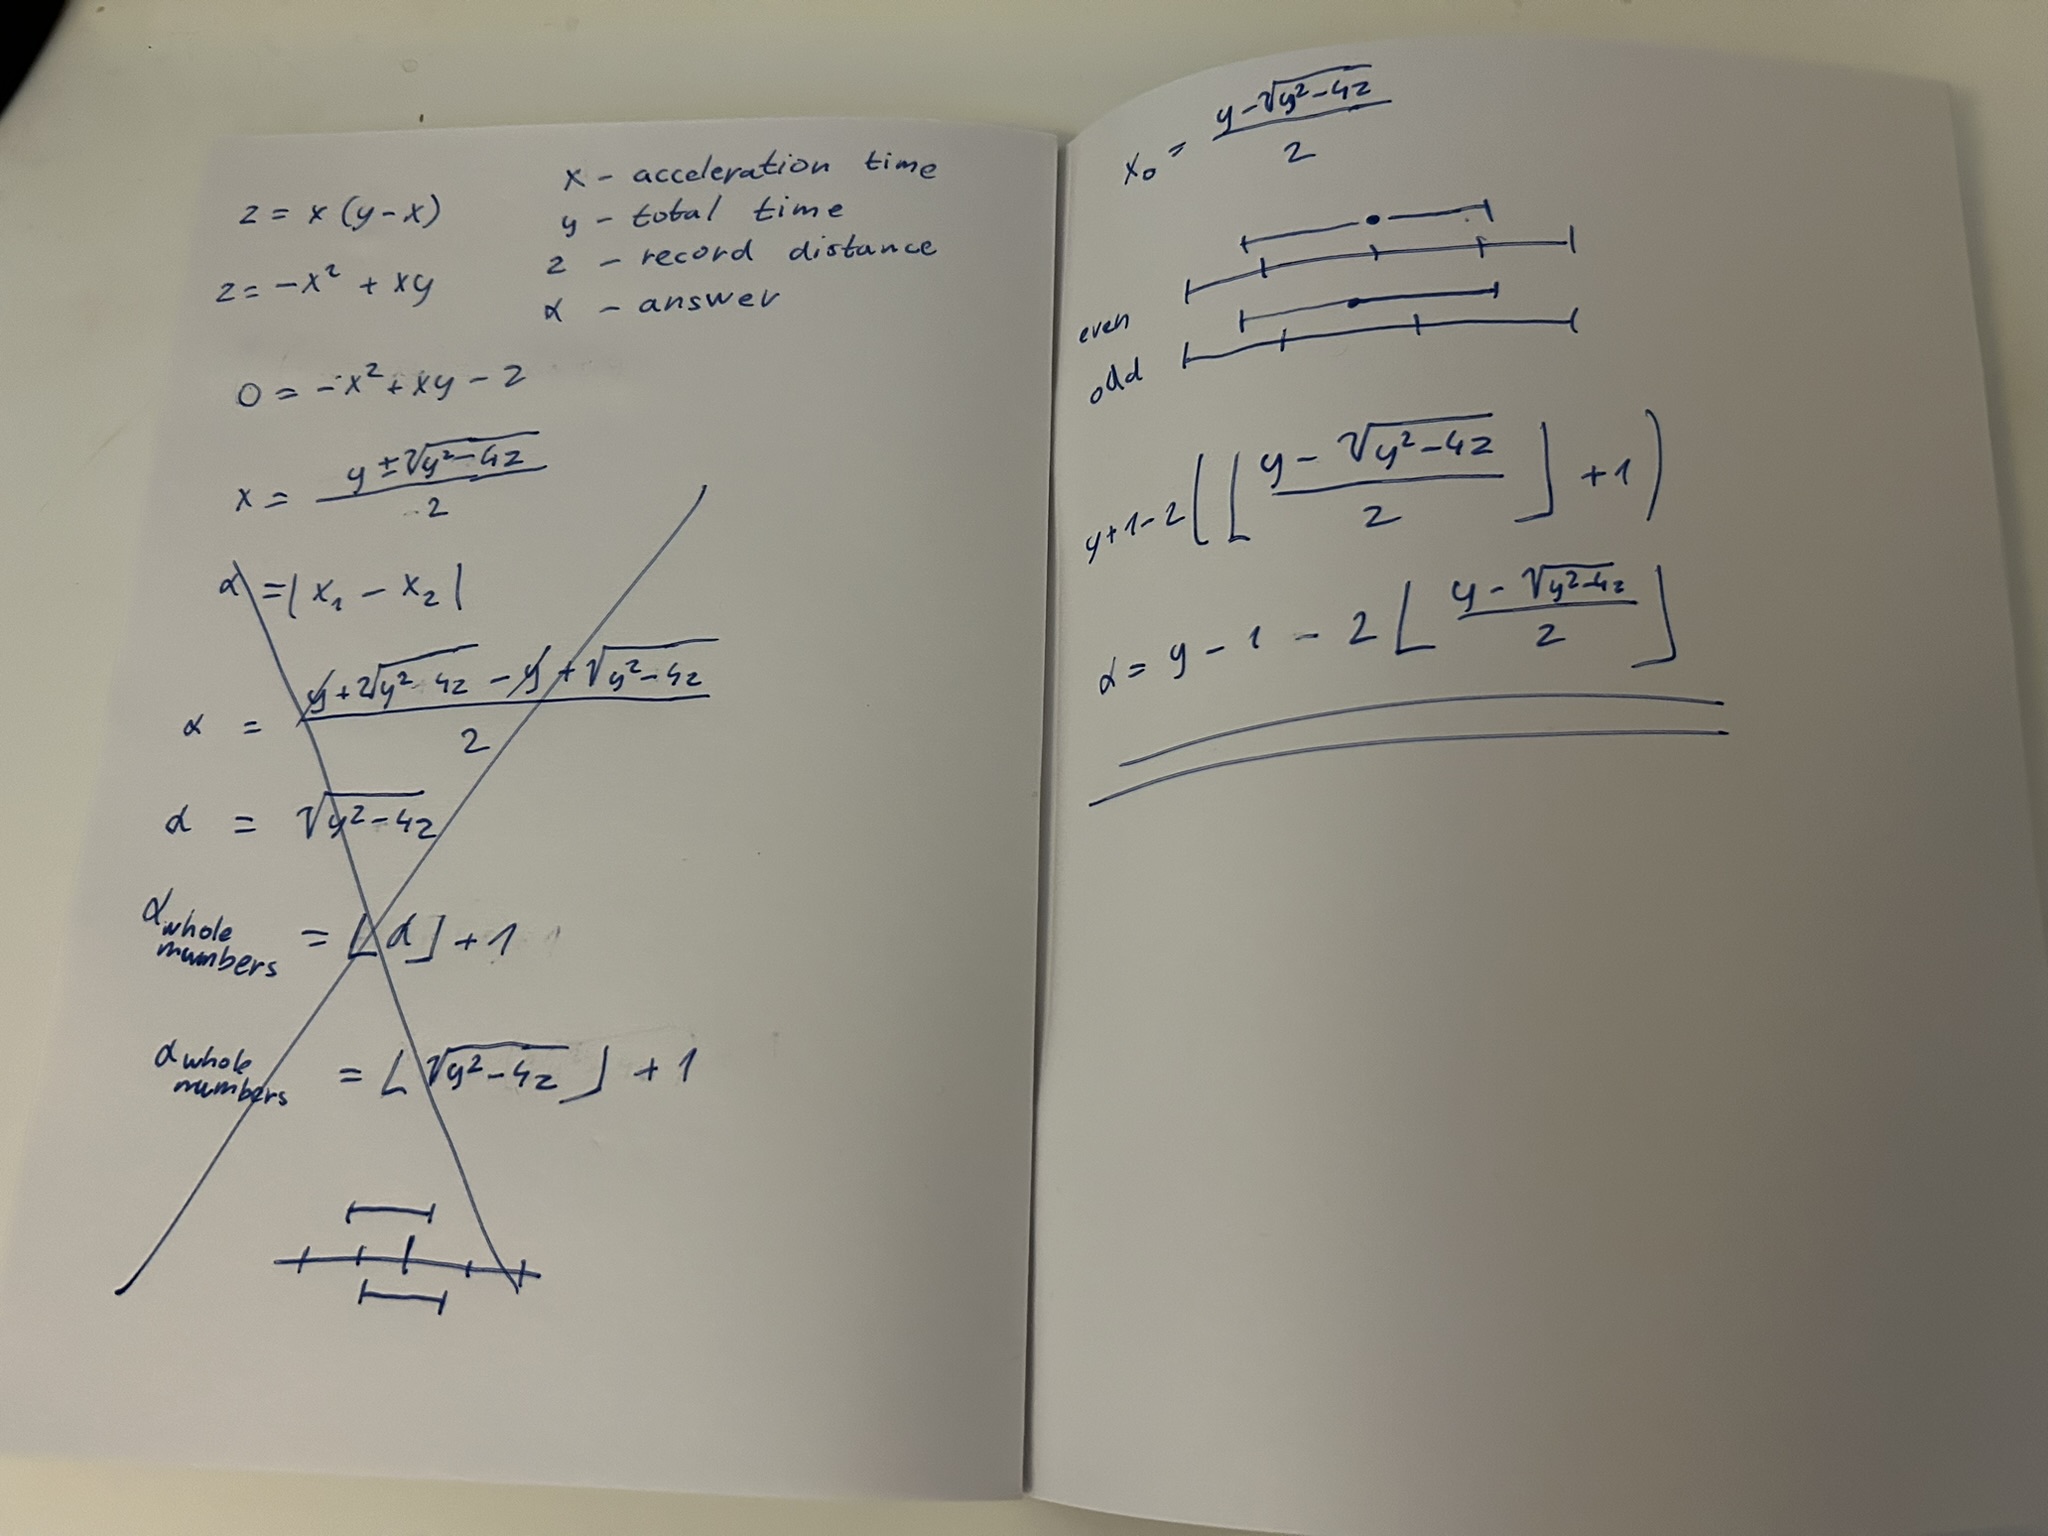 z = x (y-x)
z = -x² + xy
x - acceleration time
y - total time
z - record distance
α - answer
0 = -x² + xy - z
x = (y ± √(y²-4z)) / 2
α = | x₁ - x₂ |
α = (y + √(y²-4z) - y + √(y²-4z)) / 2
α = √(y²-4z)
α whole numbers = ⌊α⌋ + 1
α whole numbers = ⌊√(y²-4z)⌋ + 1
x₀ = (y - √(y²-4z)) / 2
even
odd
y+1-2(⌊(y - √(y²-4z)) / 2⌋ + 1)
α = y - 1 - 2⌊(y - √(y²-4z)) / 2⌋